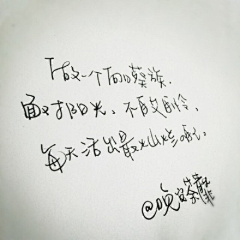 做一个向日葵族.
面对阳光,不自艾自怜,
每天活出最灿烂
@晚安